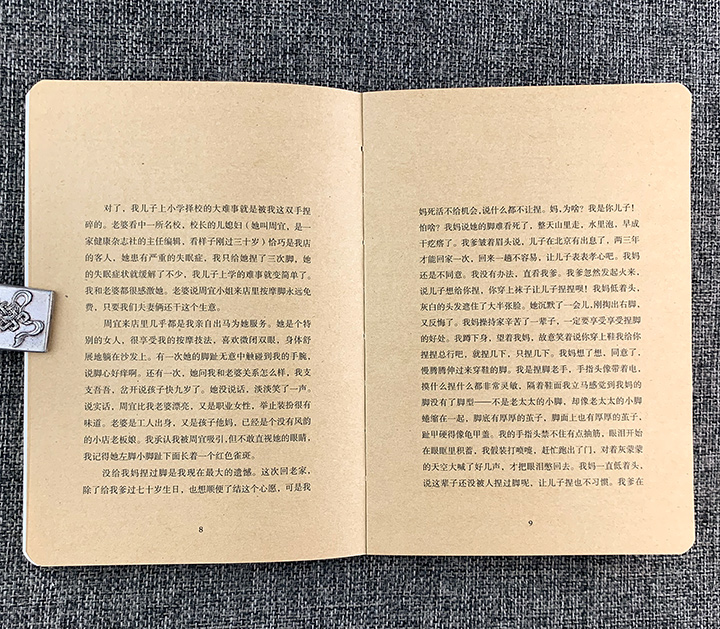 对了，我儿子上小学择校的大难事就是被我这双手捏
碎的。老婆看中一所名校，校长的儿媳妇（她叫周宜，是一
家健康杂志社的主任编辑，看样子刚过三十岁）恰巧是我店
的客人，她患有严重的失眠症，我只给她捏了三次脚，她
的失眠症状就缓解了不少，我儿子上学的难事就变简单了。
我和老婆都很感激她。老婆说周宜小姐来店里按摩脚永远免
费，只要我们夫妻俩还干这个生意。
周宜来店里几乎都是我亲自出马为她服务。她是个特
别的女人，很享受我的按摩技法，喜欢微闭双眼，身体舒
展地躺在沙发上。有一次她的脚趾无意中触碰到我的手腕，
说脚心好痒啊。还有一次，她问我和老婆关系怎么样，我支
支吾吾，岔开说孩子快九岁了。她没说话，淡淡笑了一声。
说实话，周宜比我老婆漂亮，又是职业女性，举止装扮很有
味道。老婆是工人出身，又是孩子他妈，已经是个没有风韵
的小店老板娘。我承认我被周宜吸引，但不敢直视她的眼睛，
我记得她左脚小脚趾下面长着一个红色雀斑。
没给我妈捏过脚是我现在最大的遗憾。这次回老家，
除了给我爹过七十岁生日，也想顺便了结这个心愿，可是我
8
妈死活不给机会，说什么都不让捏。妈，为啥？我是你儿子！
怕啥？我妈说她的脚难看死了，整天山里走，水里泡，早成
干疙瘩了。我爹皱着眉头说，儿子在北京有出息了，两三年
才能回家一次，回来一趟不容易，让儿子表表孝心吧。我妈
还是不同意。我没有办法，直看我爹。我爹忽然发起火来，
说儿子想给你捏，你穿上袜子让儿子捏捏呗！我妈低着头，
灰白的头发遮住了大半张脸。她沉默了一会儿，刚掏出右脚，
又反悔了。我妈操持家辛苦了一辈子，一定要享受享受捏脚
的好处。我蹲下身，望着我妈，故意笑着说你穿上鞋我给你
捏捏总行吧，就捏几下，只捏几下。我妈想了想，同意了，
慢腾腾伸过来穿鞋的脚。我是捏脚老手，手指头像带着电，
摸什么捏什么都非常灵敏，隔着鞋面我立马感觉到我妈的
脚没有了脚型——不是老太太的小脚，却像老太太的小脚
蜷缩在一起。脚底有厚厚的茧子，脚面上也有厚厚的茧子，
趾甲硬得像龟甲盖。我的手指头禁不住有点抽筋，眼泪开始
在眼眶里积蓄，我假装打喷嚏，赶忙跑出了门，对着灰蒙蒙
的天空大喊了好几声，才把眼泪憋回去。我妈一直低着头，
说这辈子还没被人捏过脚呢，让儿子捏也不习惯。我爹在
9